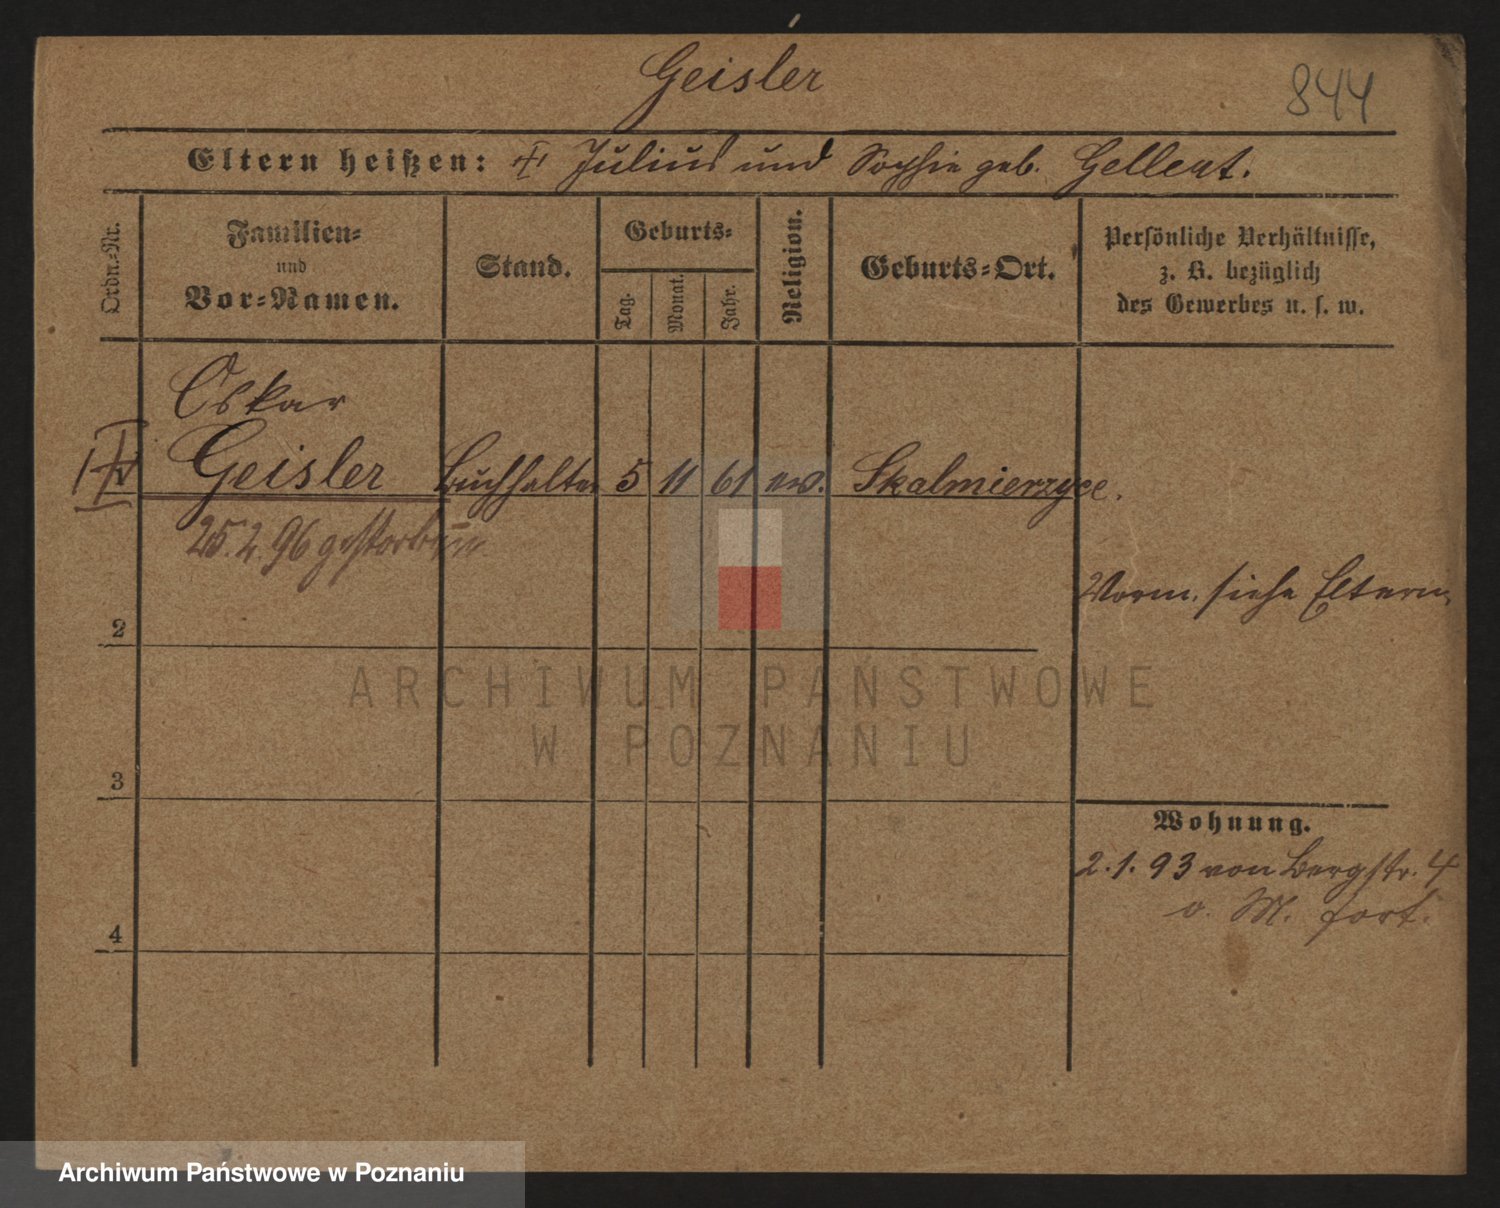 Geisler
844
Eltern heißen: Julius und Sophie geb. Gellert.
Ordn.-Nr.
Familien-
und
Vor-Namen.
Stand.
Geburts-
Tag.
Monat.
Jahr.
Religion.
Geburts-Ort.
Persönliche Verhältnisse,
z. B. bezüglich
des Gewerbes u. s. w.
Oskar
Geisler Buchhalter 5 11 61 ev. Skalmierzyce.
25.2.96 gestorben
Vorm. siehe Eltern
2
ARCHIWUM PAŃSTWOWE
W POZNANIU
3
Wohnung.
2.1.93 von Bergstr. 4
o. M. fort.
4
Archiwum Państwowe w Poznaniu